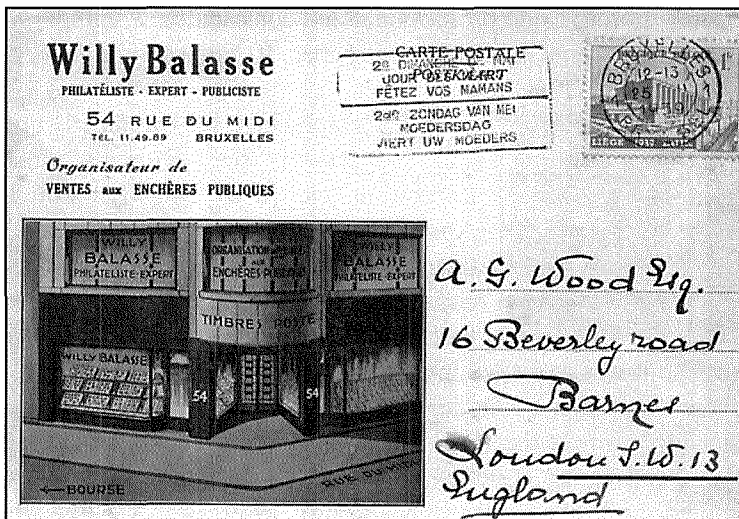 Willy Balasse
PHILATÉLISTE - EXPERT - PUBLICISTE
54 RUE DU MIDI
TÉL. 11.49.89 BRUXELLES
Organisateur de
VENTES aux ENCHÈRES PUBLIQUES
CARTE POSTALE
POSTKAART
2e DIMANCHE DE MAI
JOUR DES
FÊTEZ VOS MAMANS
2de ZONDAG VAN MEI
MOEDERSDAG
VIERT UW MOEDERS
BRUXELLES
12-13
25
1F
WILLY
BALASSE
PHILATÉLISTE-EXPERT
ORGANISATION
AUX
ENCHÈRES PUBLIQUES
WILLY
BALASSE
PHILATÉLISTE-EXPERT
TIMBRES POSTE
WILLY BALASSE
54
54
← BOURSE
RUE DU MIDI
A. G. Wood Esq.
16 Beverley road
Barnes
London S.W.13
England